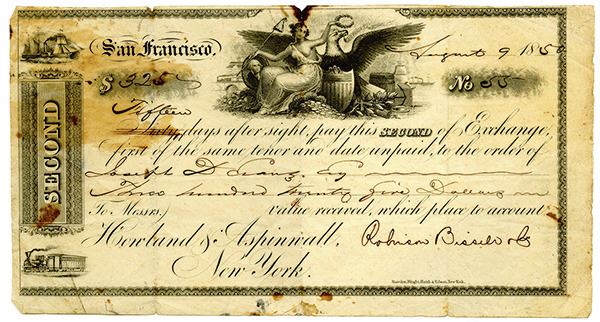 San Francisco, August 9 1850
$ 325 No 55
Fifteen
Thirty days after sight, pay this SECOND of Exchange,
first of the same tenor and date unpaid, to the order of
Joseph D
Three hundred twenty five Dollars
To Messrs value received, which place to account
Howland & Aspinwall, Robinson Bissell & Co
New York.
Rawdon, Wright, Hatch & Edson, New York.
SECOND